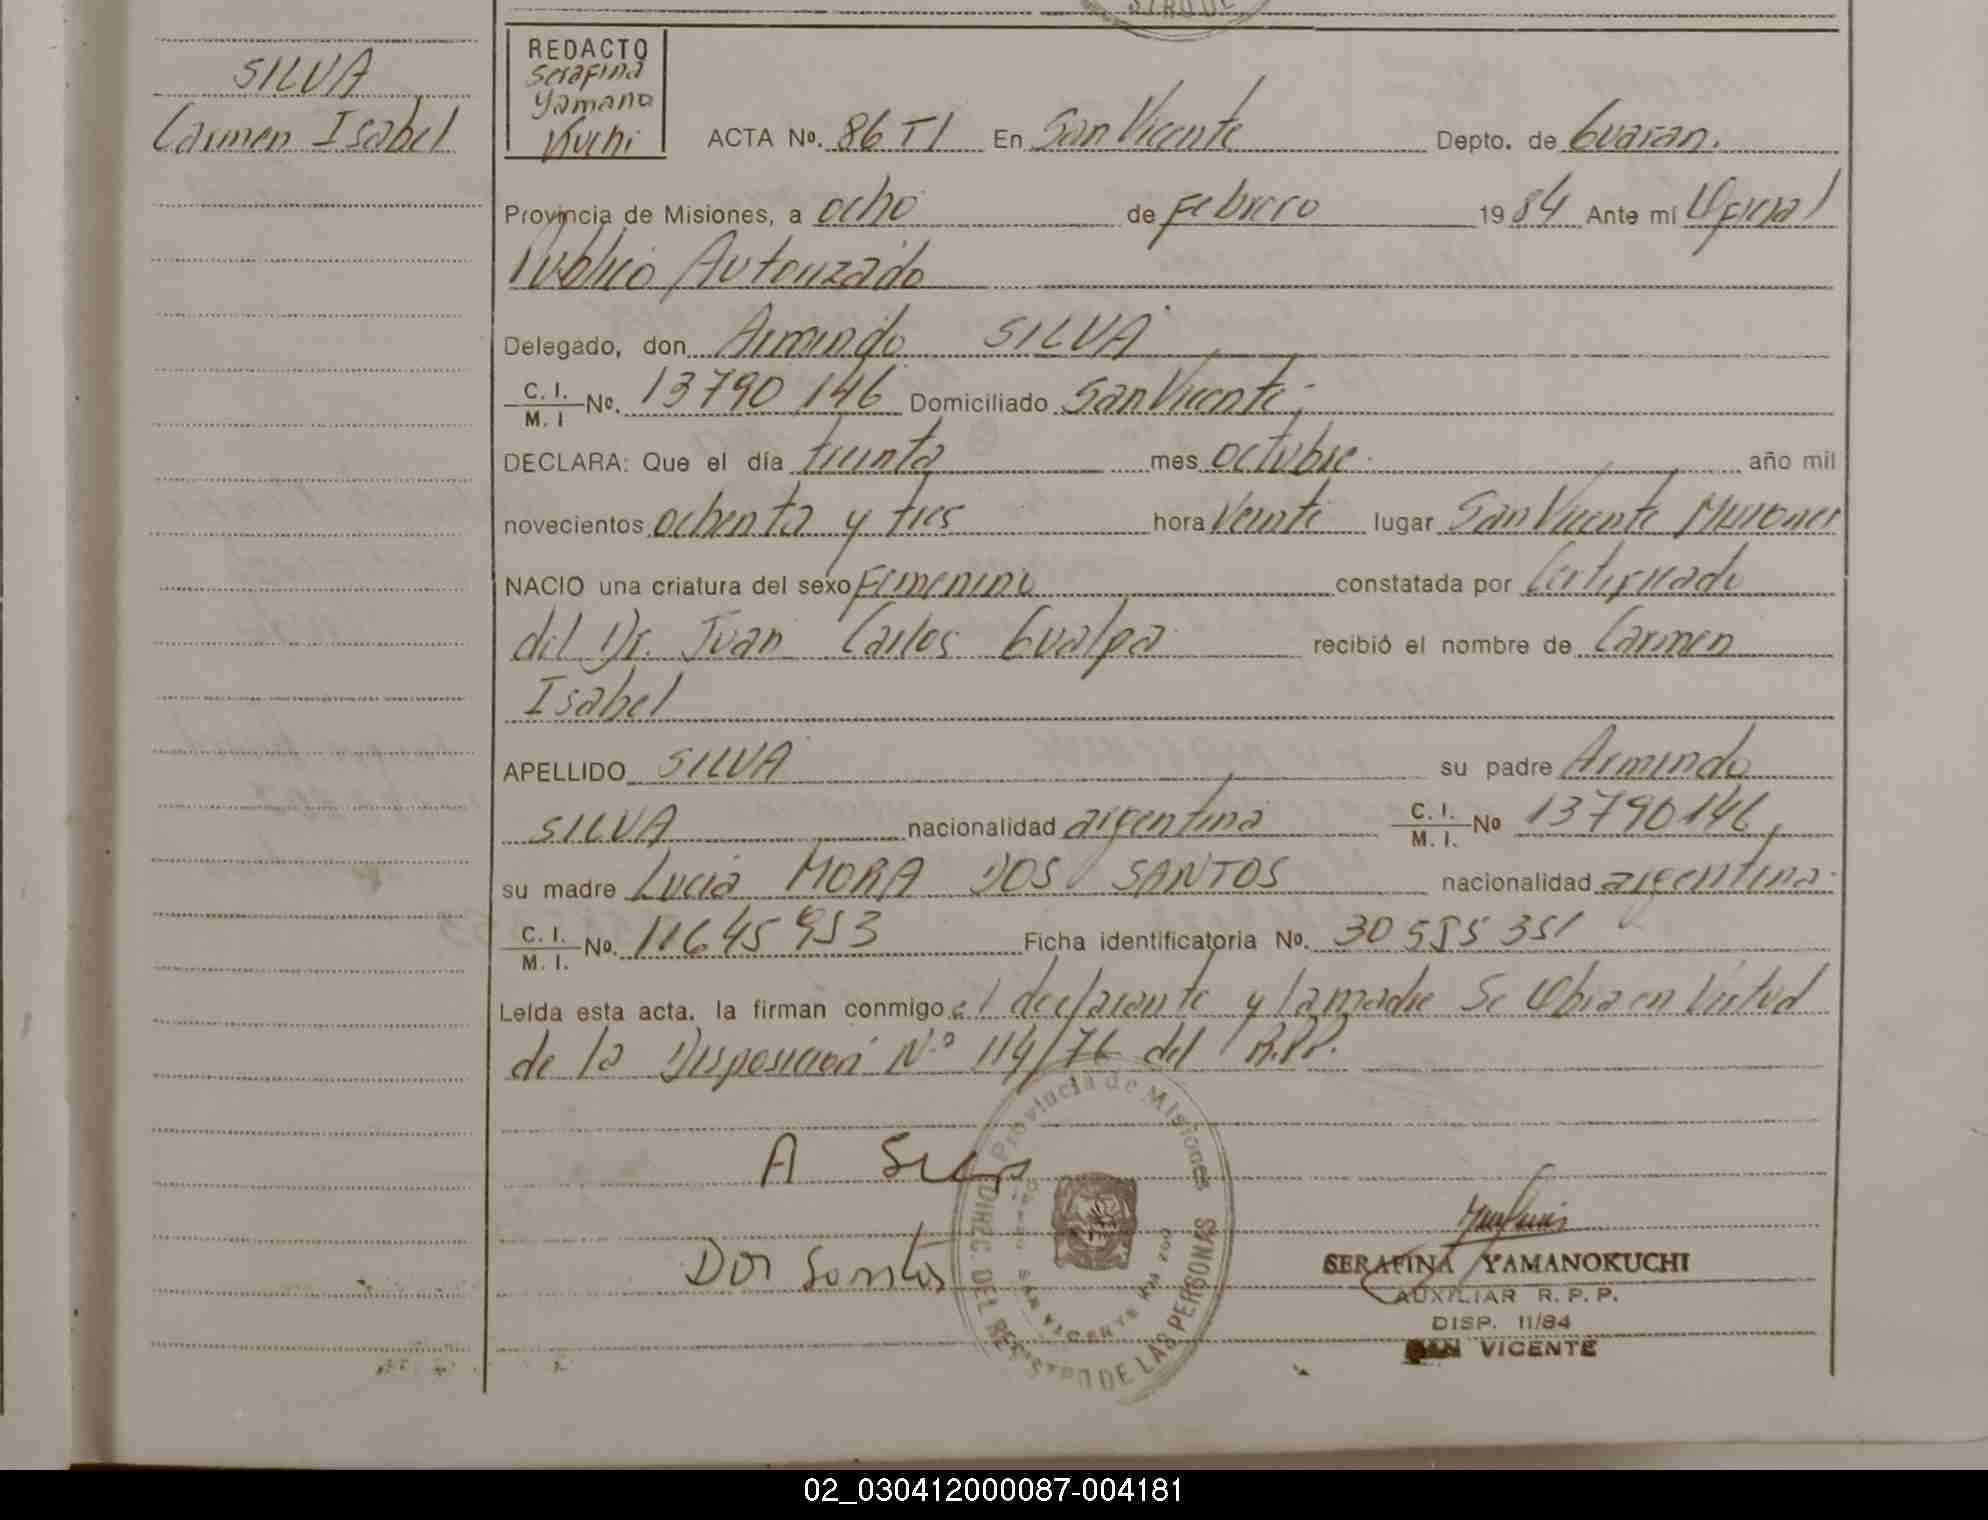 SILVA
Carmen Isabel
REDACTO
Serafina
Yamano
Kuchi
ACTA Nº. 86 TI En San Vicente Depto. de Guaran.
Provincia de Misiones, a ocho de Febrero 1984 Ante mí Oficial
Publico Autorizado
Delegado, don Armindo SILVA
C. I. / M. I Nº. 13790146 Domiciliado San Vicente;
DECLARA: Que el día treinta mes octubre año mil
novecientos ochenta y tres hora Veinte lugar San Vicente Misiones
NACIO una criatura del sexo Femenino constatada por Certificado
del Dr. Juan Carlos Gualpa recibió el nombre de Carmen
Isabel
APELLIDO SILVA su padre Armindo
SILVA nacionalidad argentina C. I. / M. I. Nº 13790146,
su madre Lucia MORA DOS SANTOS nacionalidad argentina
C. I. / M. I. Nº. 11645953 Ficha identificatoria No. 30 595 351
Leída esta acta. la firman conmigo el declarante y la madre Se Obra en Virtud
de la Disposición Nº 114/76 del R.P.P.
A Silva
Dos Santos
Provincia de Misiones
DIREC. DEL REGISTRO DE LAS PERSONAS
SAN VICENTE
SERAFINA YAMANOKUCHI
AUXILIAR R. P. P.
DISP. 11/84
SAN VICENTE
02_030412000087-004181